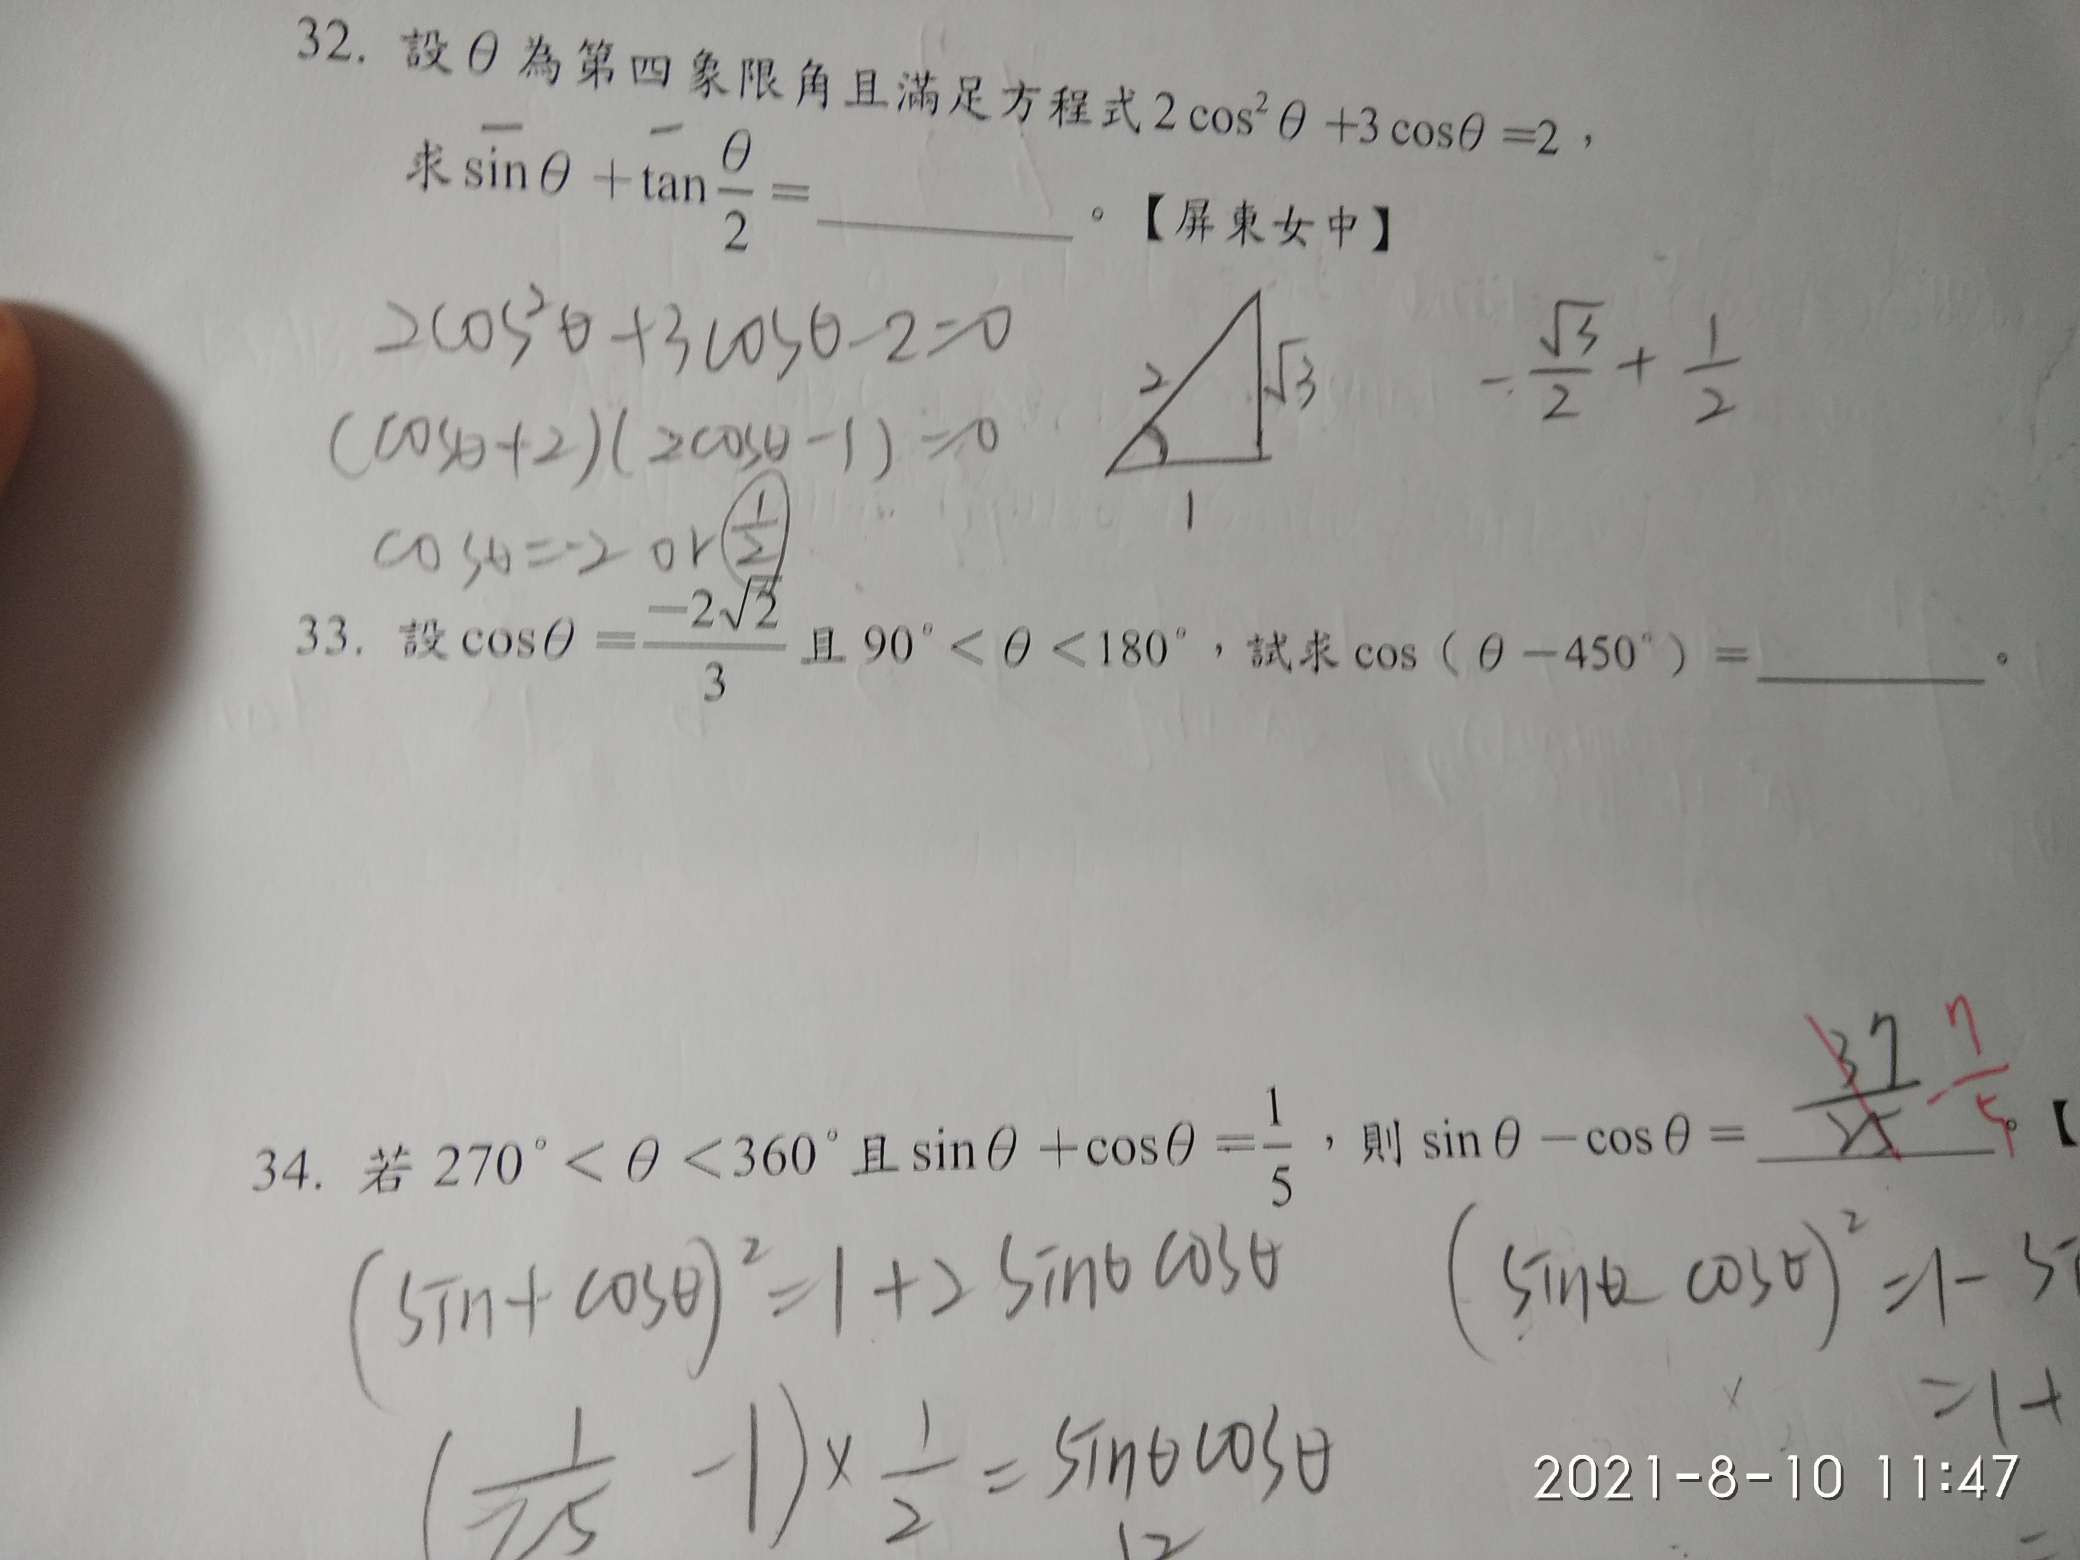 32. 設θ為第四象限角且滿足方程式2cos²θ+3cosθ=2，
求sinθ+tan θ/2=______。【屏東女中】
2cos²θ+3cosθ-2=0
(cosθ+2)(2cosθ-1)=0
cosθ=-2 or 1/2
2 √3
1
-√3/2 + 1/2
33. 設cosθ=-2√2/3且90°<θ<180°，試求cos（θ-450°）=______。
34. 若270°<θ<360°且sinθ+cosθ=1/5，則sinθ-cosθ=______。【
37/25 -7/5
(sin+cosθ)²=1+2sinθcosθ
(1/25 -1)×1/2=sinθcosθ
(sinθ-cosθ)²=1-
=1+
2021-8-10 11:47